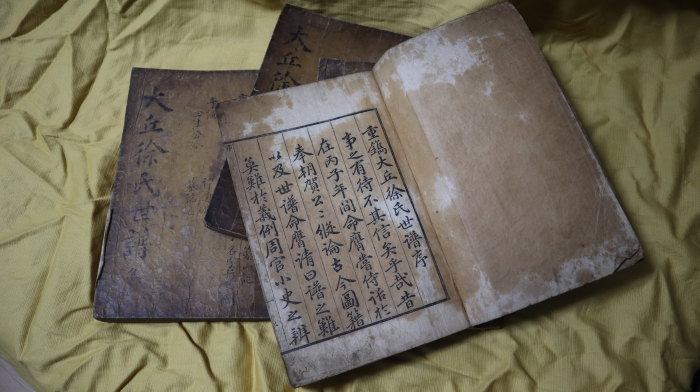 重鐫大丘徐氏世譜序
事之有待不其信矣乎哉昔
在丙子年間命膺嘗侍話於
奉朝賀公公縱論古今圖籍
以及世譜命膺請曰譜之難
莫難於義例周官小史之辨
大丘徐氏世譜
大丘徐